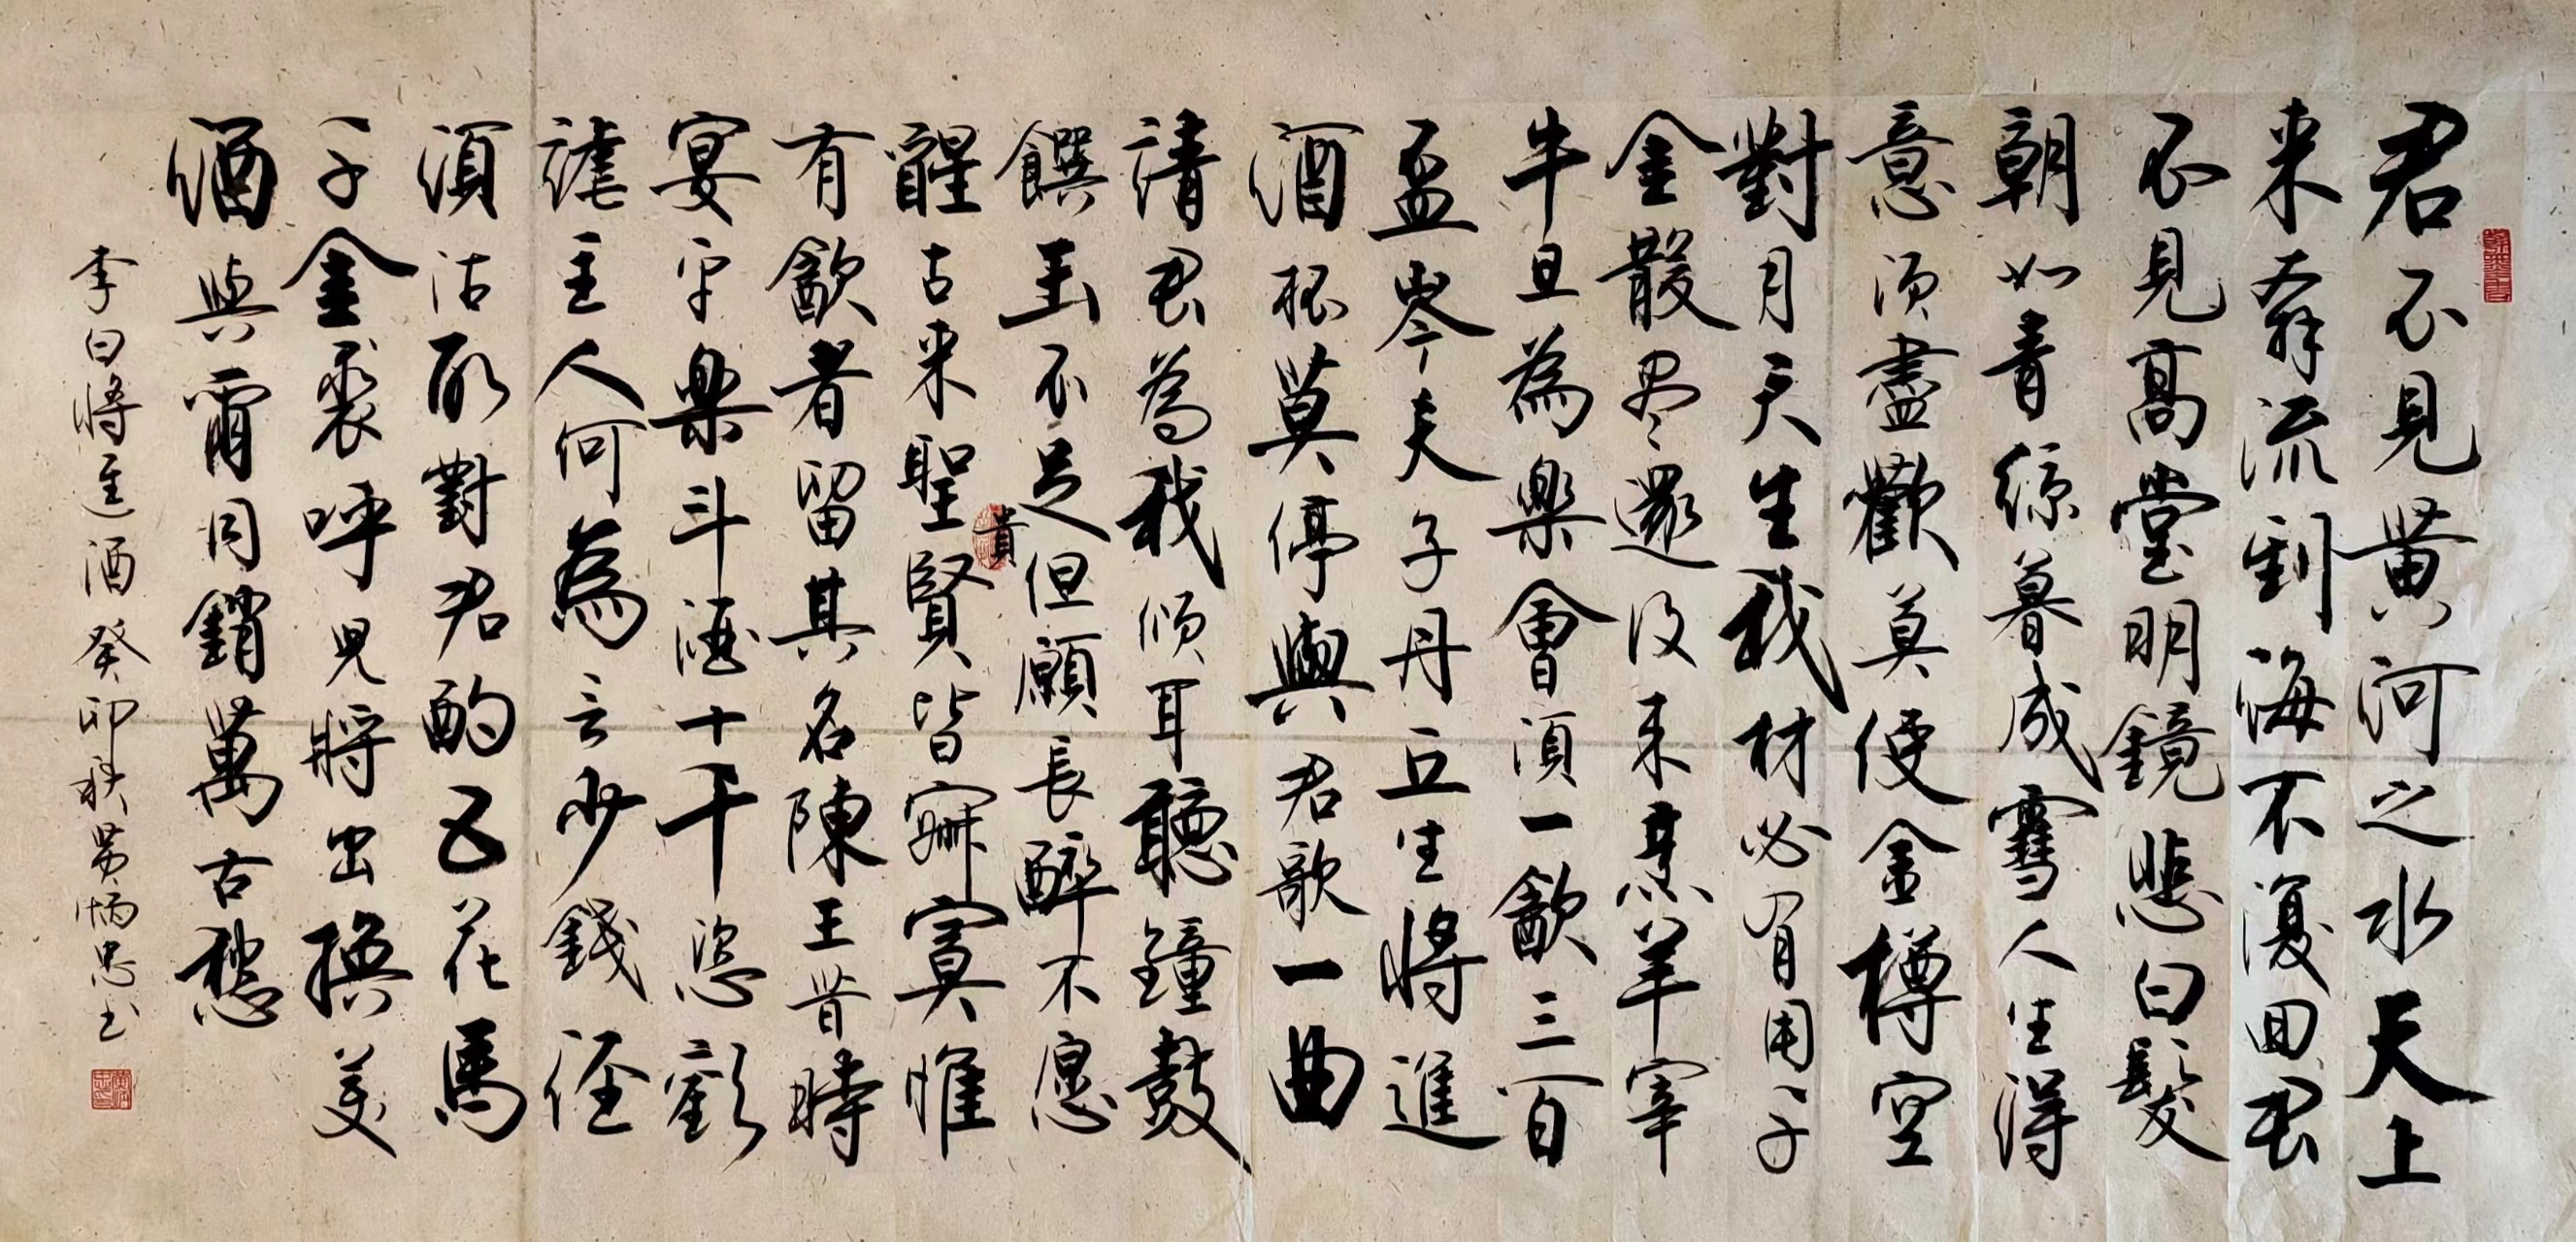 君不見黃河之水天上
來奔流到海不復回君
不見高堂明鏡悲白髮
朝如青絲暮成雪人生得
意須盡歡莫使金樽空
對月天生我材必有用千
金散尽還復來烹羊宰
牛且為樂會須一飲三百
盃岑夫子丹丘生將進
酒杯莫停與君歌一曲
請君為我傾耳聽鐘鼓
饌玉不足貴但願長醉不愿
醒古來聖賢皆寂寞惟
有飲者留其名陳王昔時
宴平樂斗酒十千恣歡
謔主人何為言少錢徑
須沽取對君酌五花馬
千金裘呼兒將出換美
酒與爾同銷萬古愁
李白將進酒癸卯秋黃炳忠書